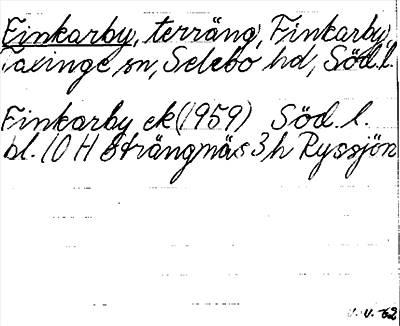 Finkarby, terräng, Finkarby,
Taxinge sn, Selebo hd, Söd.l.
Finkarby ek (1959) Söd. l.
bl. 10 H Strängnäs 3 h Ryssjön
U. U. 62